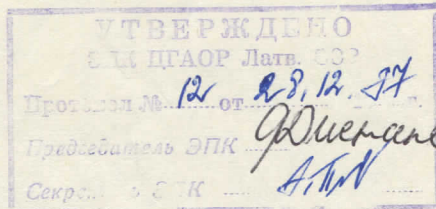 УТВЕРЖДЕНО
ЭПК ЦГАОР Латв. ССР
Протокол № 12 от 28.12.87 г.
Председатель ЭПК
Секретарь ЭПК